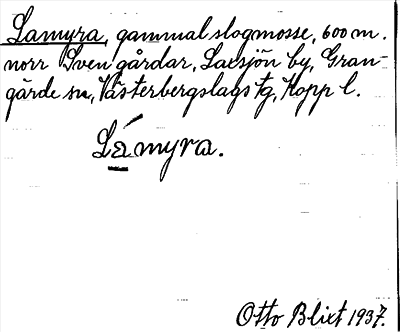 Lamyra, gammal slogmosse, 600 m.
norr Sven gårdar, Laxsjön by, Gran-
gärde sn, Västerbergslags tg, Kopp l.
Lámyra.
Otto Blixt 1937.